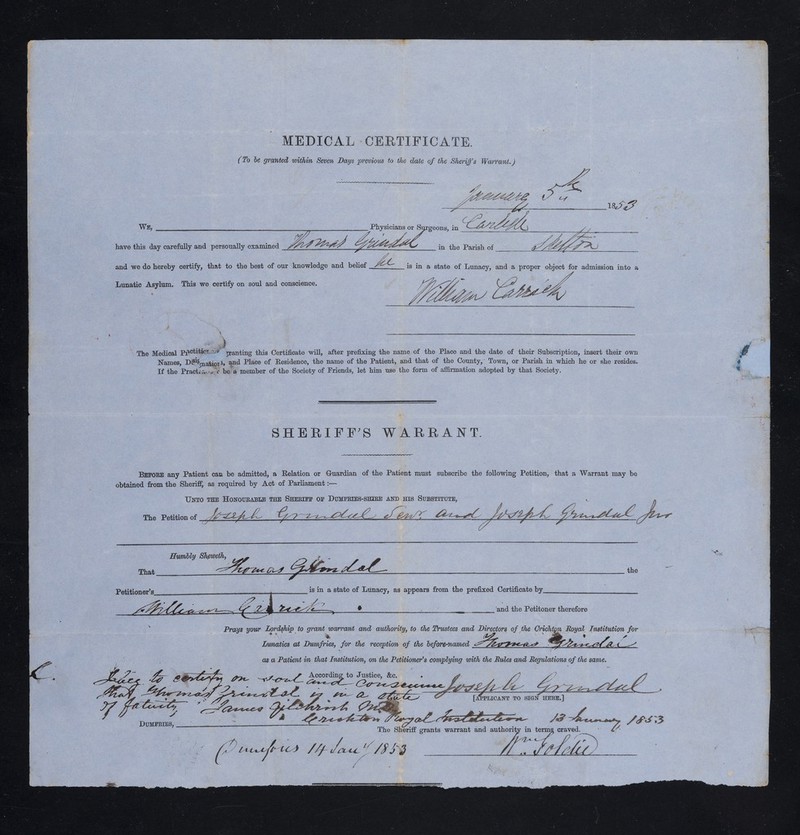 MEDICAL CERTIFICATE.
(To be granted within Seven Days previous to the date of the Sheriff's Warrant.)
January 5th 1853
WE, Physicians or Surgeons, in Carlisle
have this day carefully and personally examined Thomas Grindal in the Parish of Skelton
and we do hereby certify, that to the best of our knowledge and belief he is in a state of Lunacy, and a proper object for admission into a
Lunatic Asylum. This we certify on soul and conscience.
William Carrick
The Medical granting this Certificate will, after prefixing the name of the Place and the date of their Subscription, insert their own
Names, and Place of Residence, the name of the Patient, and that of the County, Town, or Parish in which he or she resides.
If the be a member of the Society of Friends, let him use the form of affirmation adopted by that Society.
SHERIFF'S WARRANT.
BEFORE any Patient can be admitted, a Relation or Guardian of the Patient must subscribe the following Petition, that a Warrant may be
obtained from the Sheriff, as required by Act of Parliament:—
UNTO THE HONOURABLE THE SHERIFF OF DUMFRIES-SHIRE AND HIS SUBSTITUTE,
The Petition of Joseph Grindal Senr and Joseph Grindal Jnr
Humbly Sheweth,
That Thomas Grindal the
Petitioner's is in a state of Lunacy, as appears from the prefixed Certificate by
William Carrick and the Petitoner therefore
Prays your Lordship to grant warrant and authority, to the Trustees and Directors of the Crichton Royal Institution for
Lunatics at Dumfries, for the reception of the before-named Thomas Grindal
as a Patient in that Institution, on the Petitioner's complying with the Rules and Regulations of the same.
According to Justice, &c.
to certify on soul and conscience Joseph Grindal
that Thomas Grindal is in a state [APPLICANT TO SIGN HERE.]
of fatuity James Gilchrist M.D.
DUMFRIES, Crichton Royal Institution 13 January 1853
The Sheriff grants warrant and authority in terms craved.
Dumfries 14 Jany 1853 Wm Goldie